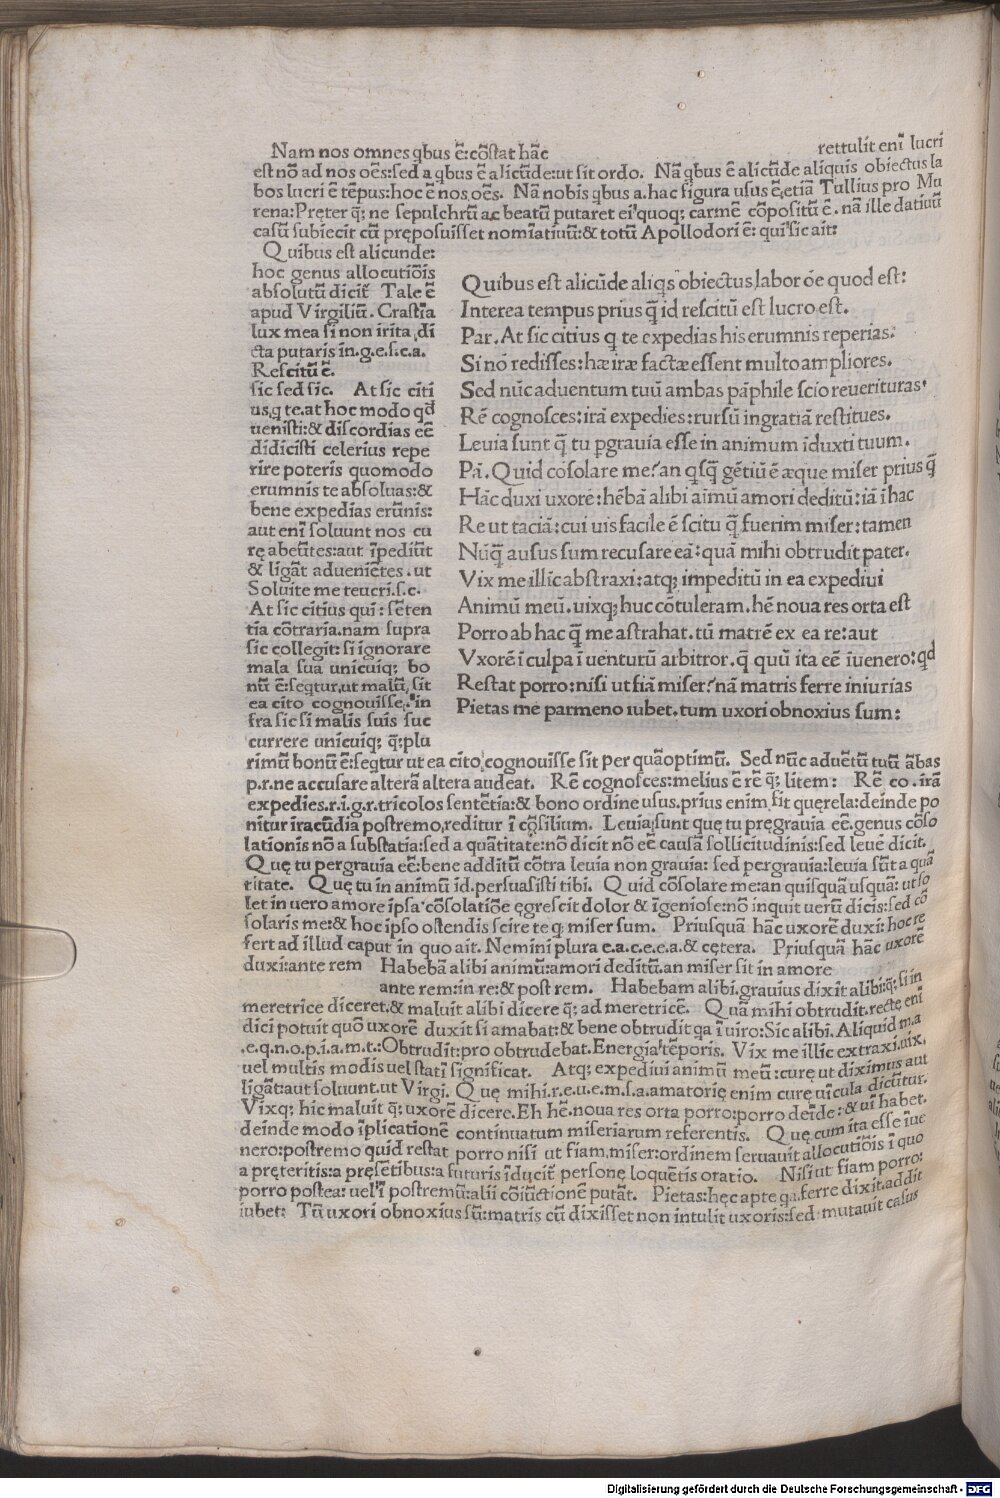 Nam nos omnes qbus ē:cōstat hāc rettulit enī lucri
est nō ad nos oēs:sed a qbus ē alicūde:ut sit ordo. Nā qbus ē alicūde aliquis obiectus la
bos lucri ē tēpus:hoc ē nos oēs. Nā nobis qbus a. hac figura usus ē,etiā Tullius pro Mu
rena:Pręter q; ne sepulchrū ac beatū putaret ei'quoq; carmē cōpositū ē. nā ille datiuū
casū subiecit cū pręposuisset nominatiuū:& totū Apollodori ē: qui sic ait:
Quibus est alicunde:
hoc genus allocutiōis
absolutū dicit̄ Tale ē
apud Virgiliū. Crastīa
lux mea si non irita di
cta putaris in.g.e.s.c.a.
Rescitū ē.
sic sed sic. At sic citi
us,q te.at hoc modo qd
uenisti:& discordias eē
didicisti celerius repe
rire poteris quomodo
erumnis te absoluas:&
bene expedias erūnis:
aut enī soluunt nos cu
rę abeūtes:aut īpediūt
& ligāt aduenīetes. ut
Soluite me teucri.s.c.
At sic citius qui: sēten
tia cōtraria.nam supra
sic collegit: si ignorare
mala sua unicuiq; bo
nū ē:seqtur,ut malū sit
ea cito cognouisse. in
fra sic si malis suis suc
currere unicuiq; q; plu
Quibus est alicūde aliqs obiectus labor ōe quod est:
Interea tempus prius q̄ id rescitū est lucro est.
Par. At sic citius q te expedias his erumnis reperias:
Si nō redisses: hæ iræ factæ essent multo ampliores.
Sed nūc aduentum tuū ambas pāphile scio reuerituras
Rē cognosces: irā expedies: rursū in gratiā restitues.
Leuia sunt q̄ tu pgrauia esse in animum īduxti tuum.
Pā. Quid cōsolare me? an qsq̄ gētiū ē æque miser prius q̄
Hāc duxi uxorē: hēbā alibi aīmū amori deditū: iā ī hac
Re ut taciā: cui uis facile ē scitu q̄ fuerim miser: tamen
Nūq̄ ausus sum recusare eā: quā mihi obtrudit pater.
Vix me illīc abstraxi: atq; impeditū in ea expediui
Animū meū. uixq; huc cōtuleram. hē noua res orta est
Porro ab hac q̄ me astrahat. tū matrē ex ea re: aut
Vxorē ī culpa ī uenturū arbitror. q̄ quū ita eē īuenero: qd
Restat porro: nisi ut fiā miser? nā matris ferre iniurias
Pietas me parmeno iubet. tum uxori obnoxius sum:
rimū bonū ē:seqtur ut ea cito cognouisse sit per quā optimū. Sed nūc aduētū tuū ābas
p.r.ne accusare alterā altera audeat. Rē cognosces:melius ē rē q; litem: Rē co.irā
expedies.r.i.g.r.tricolos sentētia:& bono ordine usus.prius enim sit quęrela:deinde po
nitur iracūdia postremo,reditur ī cōsilium. Leuia sunt quę tu pręgrauia eē.genus cōso
lationis nō a substātia:sed a quātitate:nō dicit nō eē causā sollicitudinis:sed leuē dicit.
Quę tu pergrauia eē:bene additū cōtra leuia non grauia: sed pergrauia:leuia sūt a quā
titate. Quę tu in animū id.persuasisti tibi. Quid cōsolare me:an quisquā usquā: ut so
let in uero amore ipsa cōsolatiōe ęgrescit dolor & īgeniose:nō inquit uerū dicis:sed cō
solaris me:& hoc ipso ostendis scire te q; miser sum. Priusquā hāc uxorē duxi: hoc re
fert ad illud caput in quo ait. Nemini plura e.a.c.e.e.a.& cętera. Priusquā hāc uxorē
duxi:ante rem Habebā alibi animū:amori deditū.an miser sit in amore
ante rem:in re:& post rem. Habebam alibi.grauius dixit alibi:q; si in
meretrice diceret.& maluit alibi dicere q; ad meretricē. Quā mihi obtrudit.recte enī
dici potuit quō uxorē duxit si amabat:& bene obtrudit qa ī uiro:Sic alibi.Aliquid m.a
.e.q.n.o.p.i.a.m.t.:Obtrudit:pro obtrudebat.Energia tēporis. Vix me illic extraxi.uix.
uel multis modis uel statī significat. Atq; expediui animū meū:curę ut diximus aut
ligāt:aut soluunt.ut Virgi. Quę mihi.r.e.u.e.m.s.a.amatorię enim curę uīcula dicūtur.
Vixq; hic maluit q; uxorē dicere.Eh hē.noua res orta porro:porro deīde:& uī habet.
deinde modo īplicationē continuatum miseriarum referentis. Quę cum ita esse īue
nero:postremo quid restat porro nisi ut fiam,miser:ordinem seruauit allocutiōis ī quo
a pręteritis:a pręsētibus:a futuris īducit̄ personę loquētis oratio. Nisi ut fiam porro:
porro postea: uel ī postremū:alii cōiūctionē putāt. Pietas:hęc apte qa.ferre dixit.addit
iubet: Tū uxori obnoxius sū:matris cū dixisset non intulit uxoris:sed mutauit casus
Digitalisierung gefördert durch die Deutsche Forschungsgemeinschaft - DFG